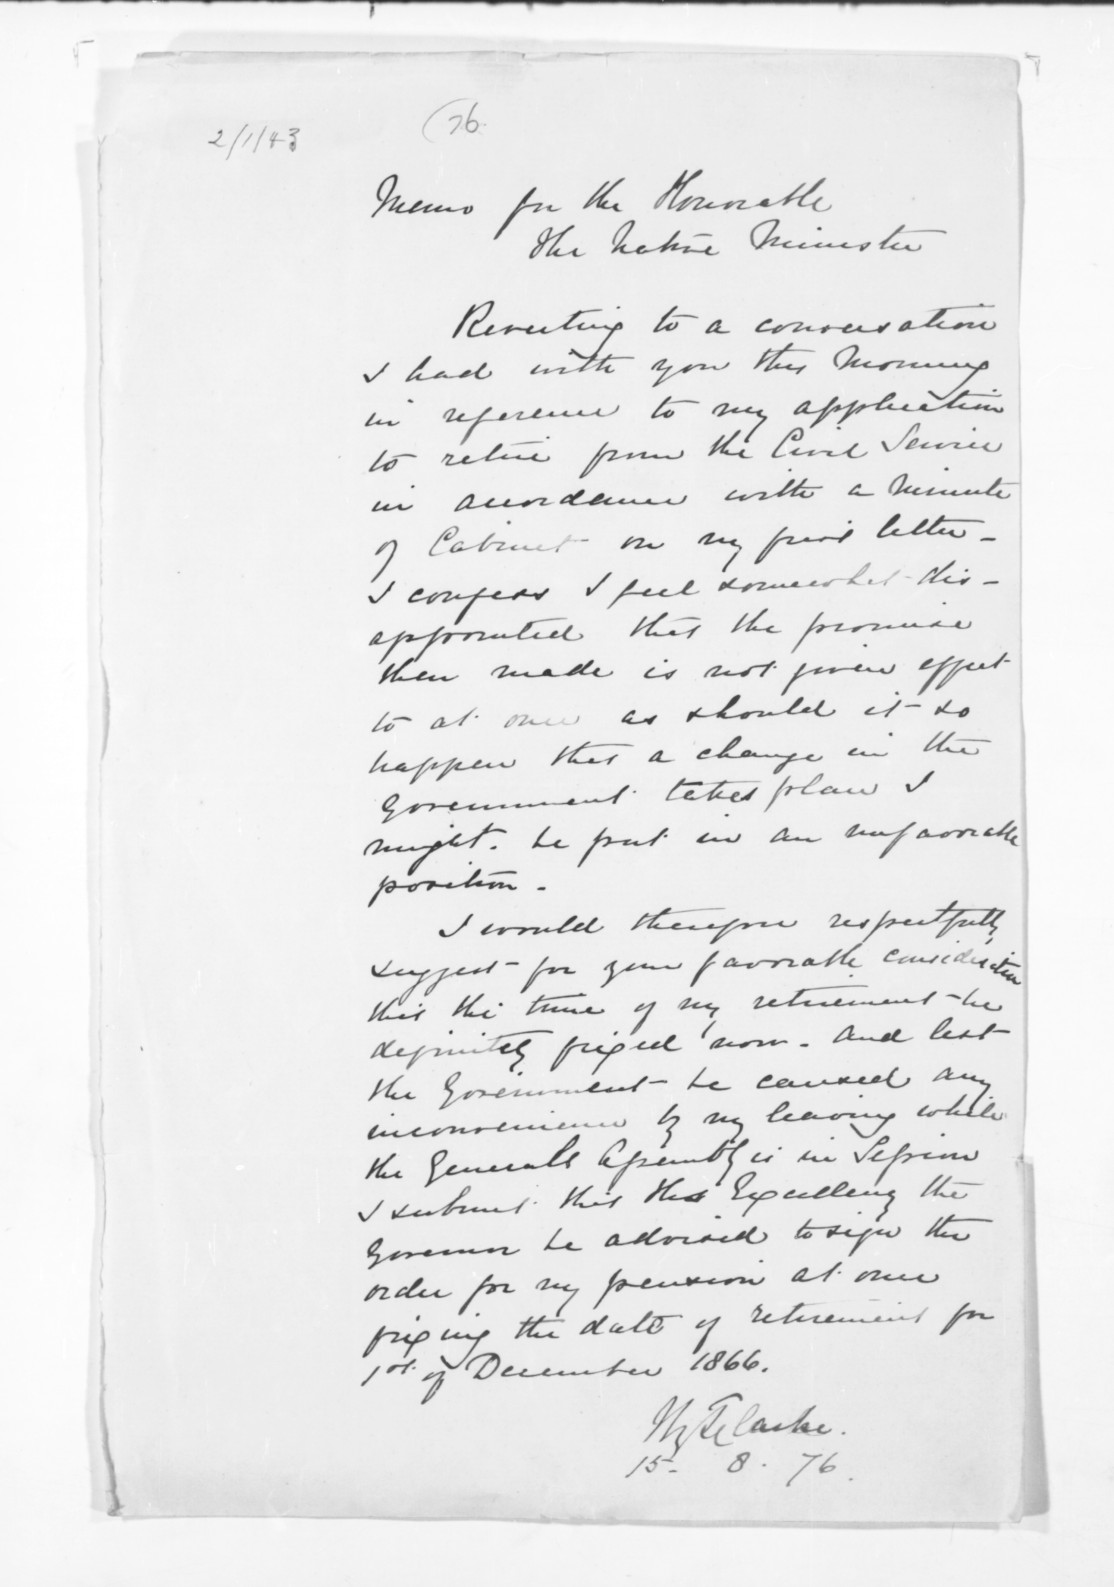 2/1/43
(76.
Memo for the Honorable
the Native Minister
Reverting to a conversation
I had with you this Morning
in reference to my application
to retire from the Civil Service
in accordance with a Minute
of Cabinet on my first letter -
I confess I feel somewhat dis-
appointed that the promise
then made is not given effect
to at once as should it so
happen that a change in the
Government takes place I
might. be put in an unfavorable
position -
I would therefore respectfully
suggest for your favorable consideration
that the time of my retirement be
definitely fixed now - and lest
the Government be caused any
inconvenience by my leaving while
the General Assembly is in Session
I submit that His Excellency the
Governor be advised to sign the
order for my pension at once
fixing the date of retirement for
1st of December 1866.
Clarke.
15 - 8. 76.